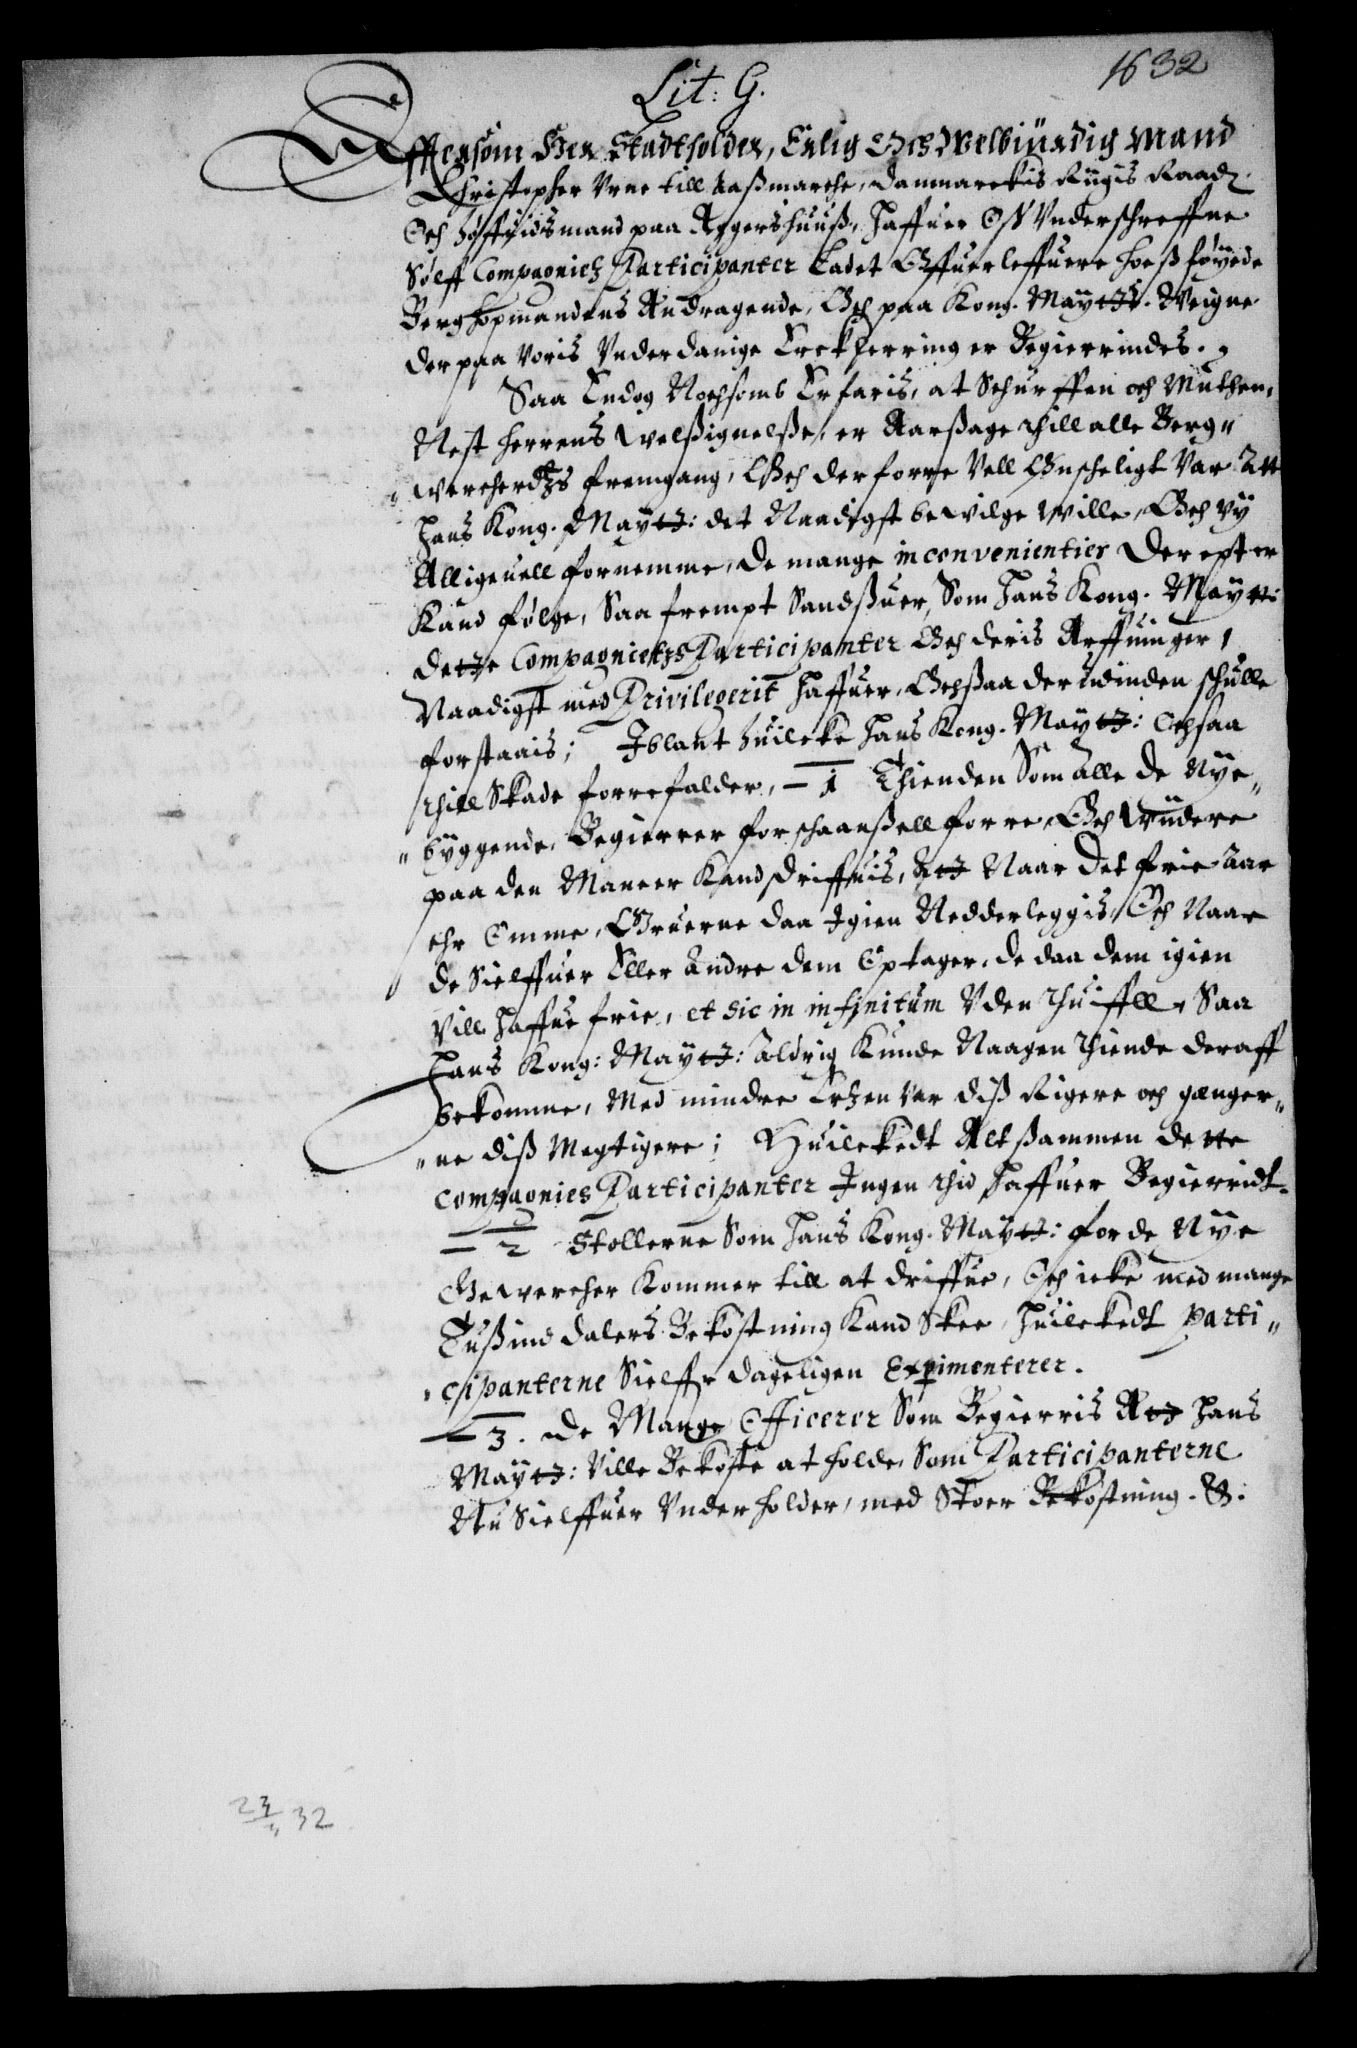 1632
Lit: G.
Efftersom Her Stadtholder, Erlig Och Welbiürdig Mand
Christopher Vrne till Aaßmarche, Danmarckis Riigis Raadz
Och höffuidsmand paa Aggershuuß, haffuer Oß Vnderschreffne
Sølff Compagnietz Participanter Ladet Offuerleffuere hoeß føyede
Berghopmandens Andragende, Och paa Kong. Maytts. Weigne
der paa voris Vnderdanige Erckherring er Begierrindes.
Saa Endog Nochsomb Erfaris, at Schurffen och Muthen,
Nest Herrens Welßignelße, er Aarßage thill alle Berg"
" wercherdtzs fremgang, Och der forre Vell Ønscheligt Var Att
Hans Kong. Maytt: det Naadigst bewilge wille, Och vy
Alligeuell fornemme, de mange inconvenientier der epter
Kand følge, Saa frempt Sandßuer, Som Hans Kong. Maytt:
dette Compagnietzs Participanter Och deris Arffuinger,
Naadigst med Privilegerit haffuer, Ochßaa der udinden schulle
forstaais; Iblant huilcke Hans Kong. Maytt: Ochsaa
thill Skade forrefalder, – 1 Thienden Som alle de Nye"
" byggende, Begierrer forschaanßell forre, Och Videre
paa den Maneer Kand driffuis, Att Naar det frie Aar
ehr Omme, Gruerne daa Igien Nedderleggis, Och Naar
de Sielffuer Eller Andre dem Optager, de daa dem igien
Vill haffue frie, et sic in infinitum Vden thuiffll, Saa
Hans Kong: Maytt: Aldrig Kunde Naagen thiende deraff
bekomme, Med mindre Ertzen var diß Rigere och gænger"
" ne diß Megtigere; Huilckedt Altßammen dette
Compagnies Participanter Ingen thid haffuer Begierridt.
– 2 Stollerne Som Hans Kong. Maytt: for de Nye
Gewercher Kommer till at driffue, Och icke med mange
Tußind dalers Bekostning Kand Skee, Huilckedt Parti"
" cipanterne Sielffr dageligen Experimenterer.
– 3. De Mange Officerer Som Begierris Att Hans
Maytt: Ville Bekoste at holde, Som Participanterne
Nu Sielffuer Vnderholder, med Stoer Bekostning. &.
23/11 32